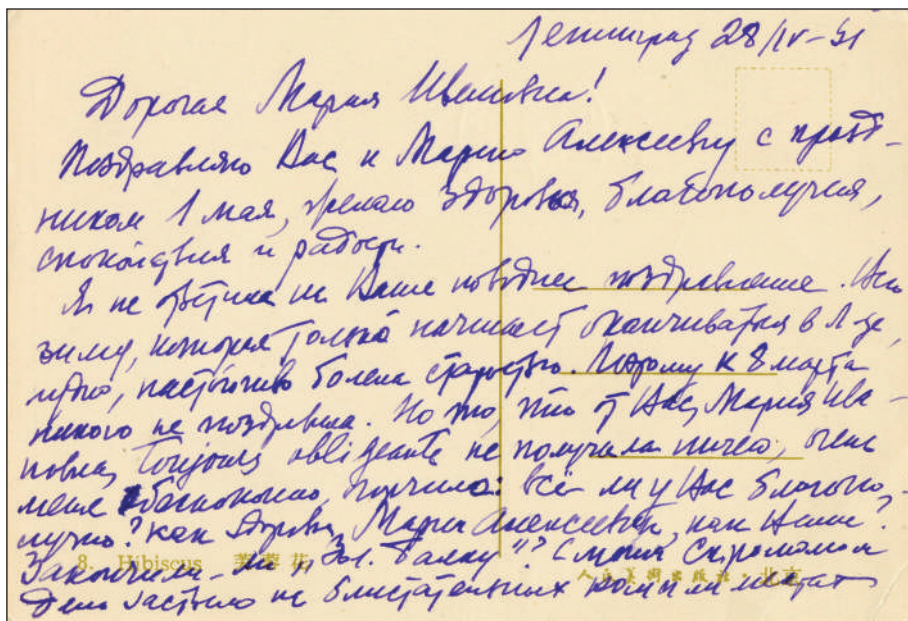 Ленинград 28/IV-51
Дорогая Мария Ивановна!
Поздравляю Вас и Марию Алексеевну с празд-
ником 1 мая, желаю здоровья, благополучия,
спокойствия и радости.
Я не ответила на Ваше новогоднее поздравление. Всю
зиму, которая только начинает оканчиваться в Л-де,
нудно, настойчиво болела старостью. Поэтому к 8 марта
никого не поздравила. Но то, что от Вас, Мария Ива-
новна, toujours obligeante не получала ничего, очень
меня обеспокоило, : все ли у Вас благопо-
лучно? Как здоровье Марии Алексеевны, как Ваше?
8. Hibiscus 芙蓉花
Закончили-ли „Зол. Балку"? С моим Скромолом
人民美術出版社·北京
дело застыло на блистательных